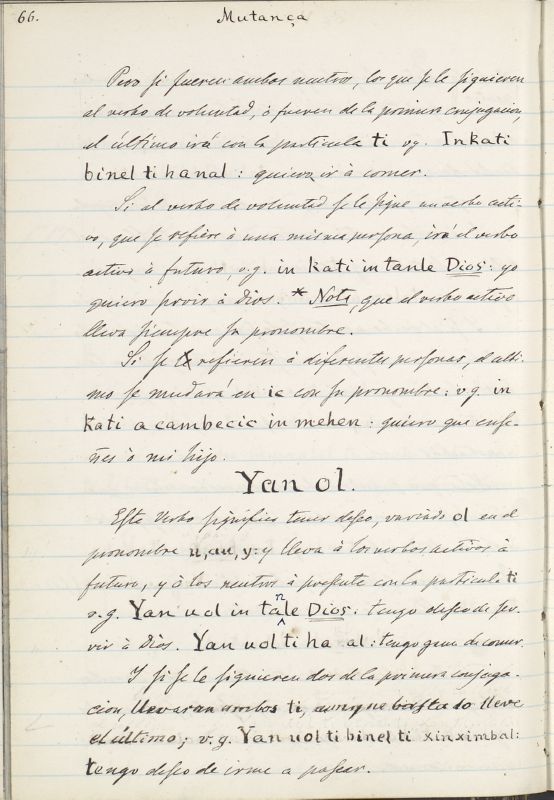 66.
Mutança
Pero si fueren ambos neutros, los que se le siguieren
al verbo de voluntad, ó fueren de la primera conjugacion,
el último irá con la particula ti vg. Inkati
binel ti hanal: quiero ir à comer.
Si al verbo de voluntad se le sigue un verbo acti-
vo, que se refiere à una misma persona, irá el verbo
activo à futuro, v.g. in kati in tanle Dios: yo
quiero servir à Dios. * Nota, que el verbo activo
lleva siempre su pronombre.
Si se refieren à diferentes personas, el ulti-
mo se mudará en ic con su pronombre: vg. in
kati a cambecic in mehen: quiero que ense-
ñes à mi hijo.
Yan ol.
Este Verbo significa tener deseo, variado ol en el
pronombre u, au, y: y lleva à los verbos activos à
futuro, y à los neutros à presente con la particula ti
v.g. Yan uol in tanle Dios: tengo deseo de ser-
vir à Dios. Yan uol ti ha al: tengo gana de comer.
Y si se le siguieren dos de la primera conjuga-
cion, llevaran ambos ti, aunque basta lo lleve
el último; v.g. Yan uol ti binel ti xinximbal:
tengo deseo de irme a pasear.